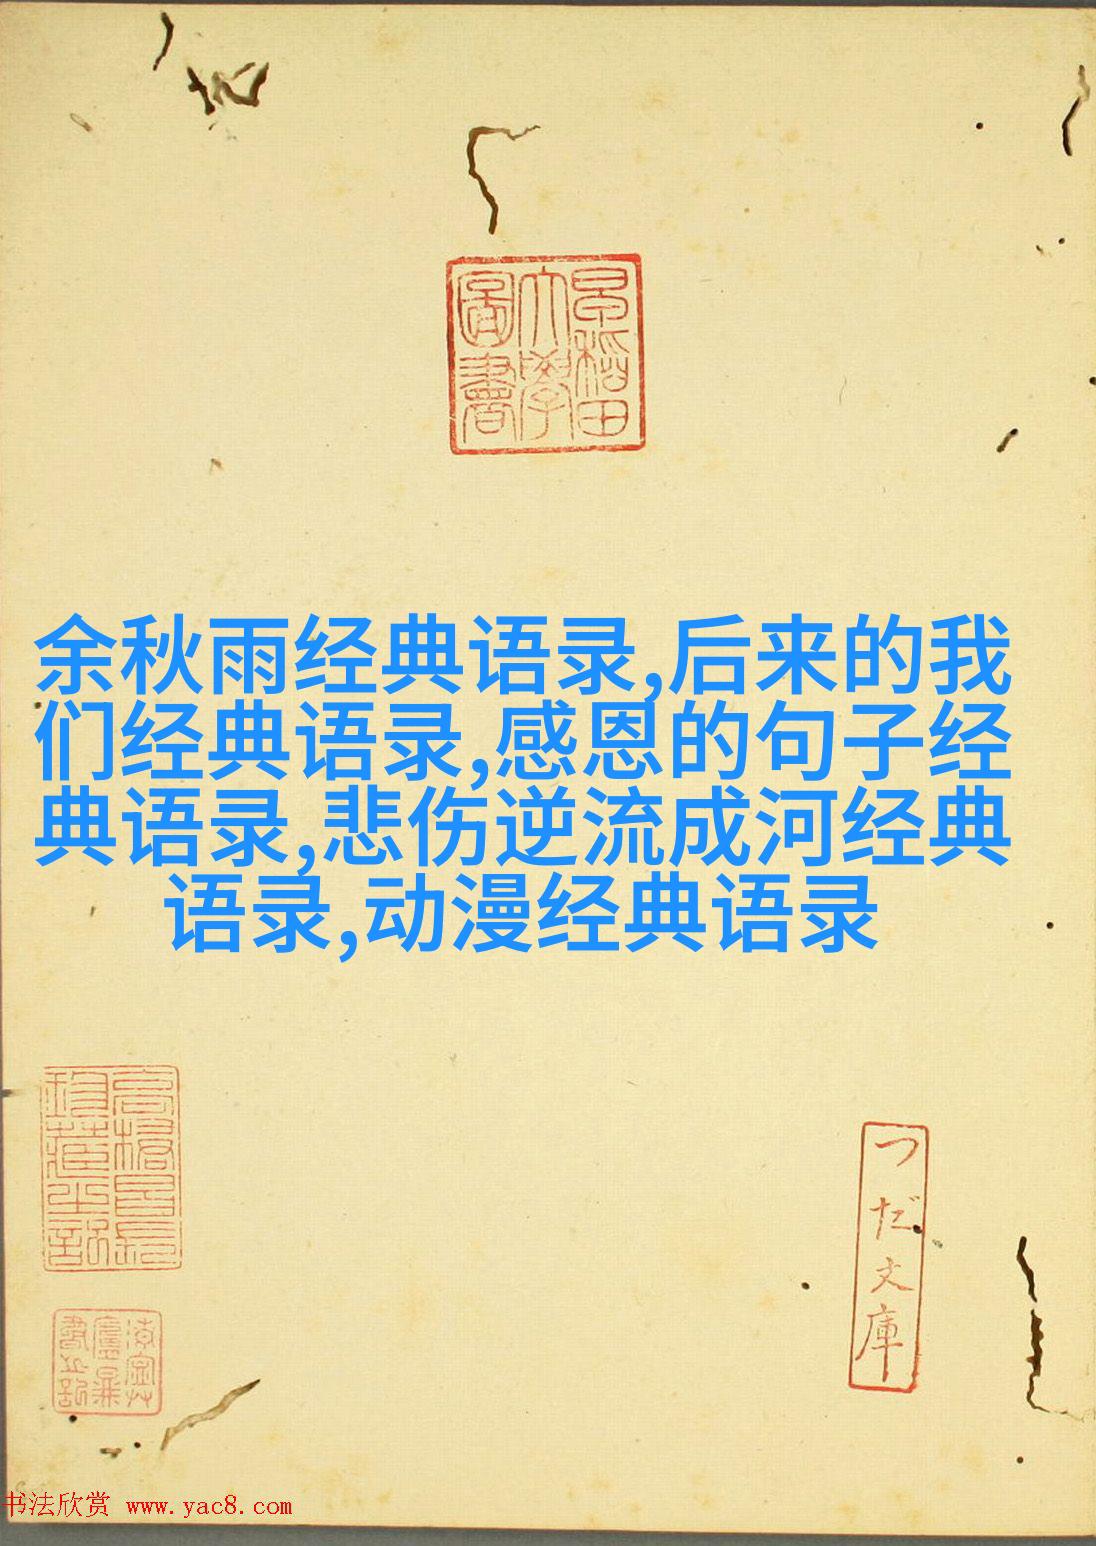 早稻田
大學
圖書
余秋雨经典语录,后来的我
们经典语录,感恩的句子经
典语录,悲伤逆流成河经典
语录,动漫经典语录
つだ文庫
书法欣赏 www.yac8.com